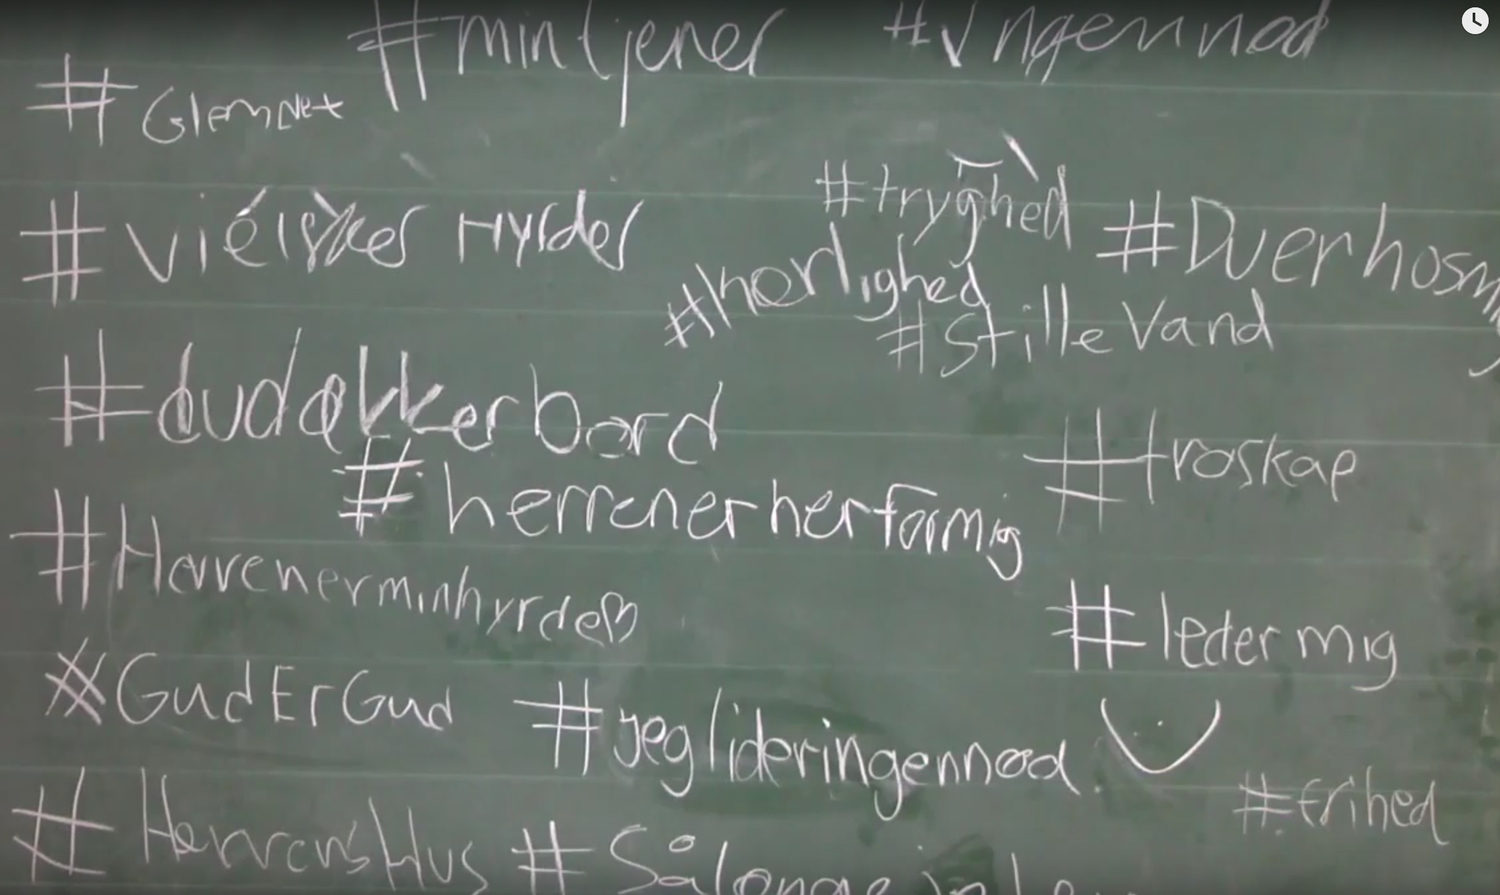 #mintjener
#Ingennød
#GlemNet
#viélsker Hyrder
#tryghed
#Duerhosm
#herlighed
#StilleVand
#dudækkerbord
#troskap
#herrenerherformig
#Herrenerminhyrde♡
#ledermig
#GudErGud
#jeglideringennød
#frihed
#HerrensHus
#Sålænge